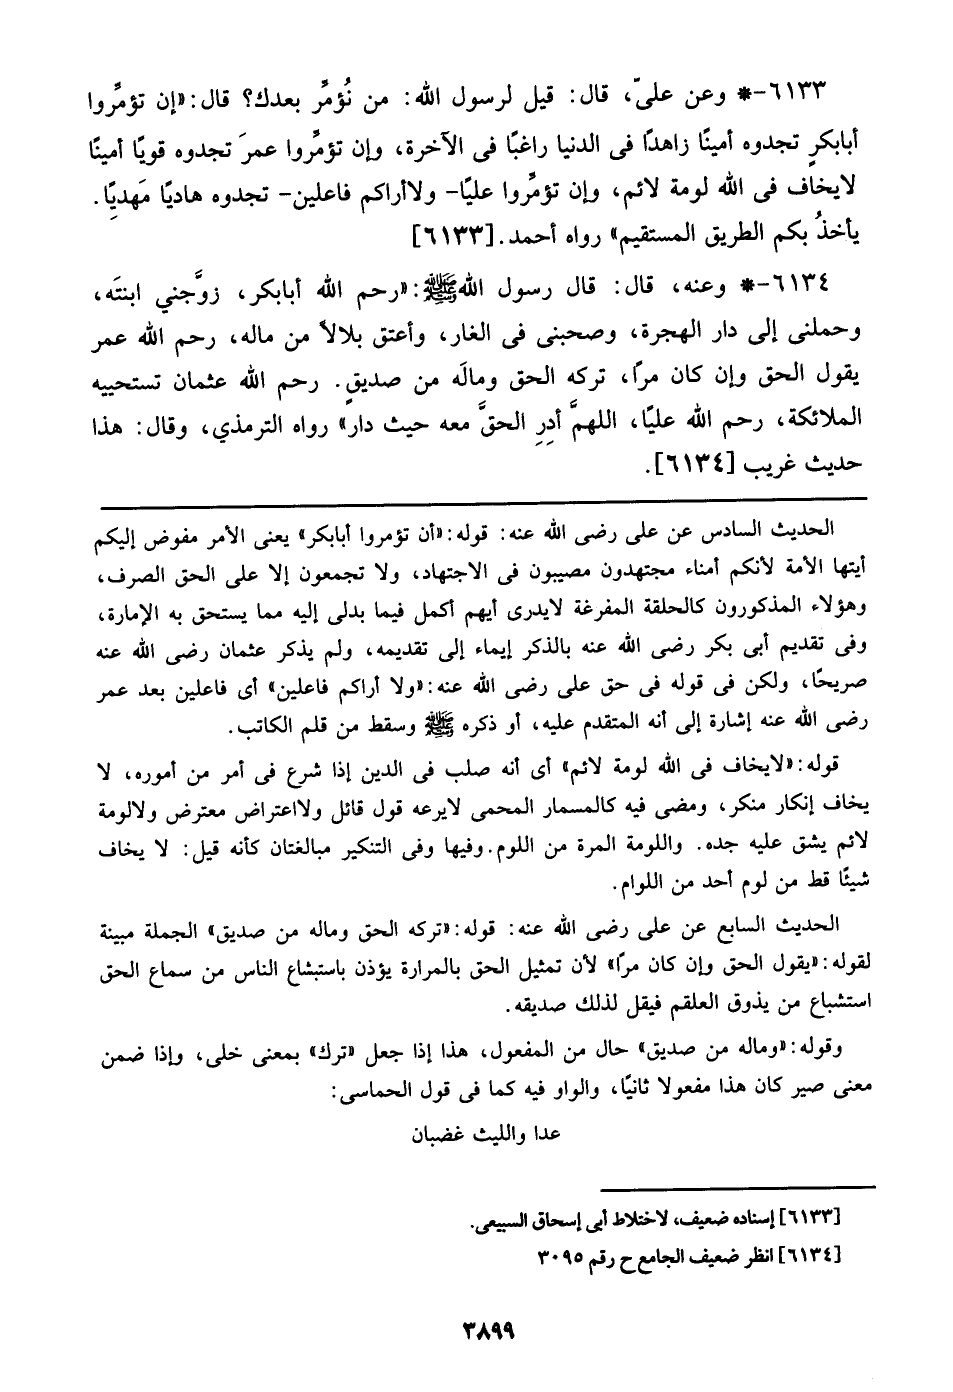 ٦١٣٣-* وعن علىّ، قال: قيل لرسول الله: من نُؤمِّر بعدك؟ قال: «إن تؤمِّروا
أبابكرٍ تجدوه أمينًا زاهدًا فى الدنيا راغبًا فى الآخرة، وإن تؤمِّروا عمرَ تجدوه قويًا أمينًا
لايخاف فى الله لومة لائم، وإن تؤمِّروا عليًا- ولاأراكم فاعلين- تجدوه هاديًا مَهدِيًا.
يأخذُ بكم الطريق المستقيم» رواه أحمد. [٦١٣٣]
٦١٣٤-* وعنه، قال: قال رسول اللهﷺ: «رحم الله أبابكر، زوَّجني ابنتَه،
وحملنى إلى دار الهجرة، وصحبنى فى الغار، وأعتق بلالاً من ماله، رحم الله عمر
يقول الحق وإن كان مرًا، تركه الحق ومالَه من صديقٍ. رحم الله عثمان تستحييه
الملائكة، رحم الله عليًا، اللهمَّ أدِرِ الحقَّ معه حيث دار» رواه الترمذي، وقال: هذا
حديث غريب [٦١٣٤].
الحديث السادس عن على رضى الله عنه: قوله: «أن تؤمروا أبابكر» يعنى الأمر مفوض إليكم
أيتها الأمة لأنكم أمناء مجتهدون مصيبون فى الاجتهاد، ولا تجمعون إلا على الحق الصرف،
وهؤلاء المذكورون كالحلقة المفرغة لايدرى أيهم أكمل فيما يدلى إليه مما يستحق به الإمارة،
وفى تقديم أبى بكر رضى الله عنه بالذكر إيماء إلى تقديمه، ولم يذكر عثمان رضى الله عنه
صريحًا، ولكن فى قوله فى حق على رضى الله عنه: «ولا أراكم فاعلين» أى فاعلين بعد عمر
رضى الله عنه إشارة إلى أنه المتقدم عليه، أو ذكره ﷺ وسقط من قلم الكاتب.
قوله: «لايخاف فى الله لومة لائم» أى أنه صلب فى الدين إذا شرع فى أمر من أموره، لا
يخاف إنكار منكر، ومضى فيه كالمسمار المحمى لايرعه قول قائل ولااعتراض معترض ولالومة
لائم يشق عليه جده. واللومة المرة من اللوم. وفيها وفى التنكير مبالغتان كأنه قيل: لا يخاف
شيئًا قط من لوم أحد من اللوام.
الحديث السابع عن على رضى الله عنه: قوله: «تركه الحق وماله من صديق» الجملة مبينة
لقوله: «يقول الحق وإن كان مرًا» لأن تمثيل الحق بالمرارة يؤذن باستبشاع الناس من سماع الحق
استشباع من يذوق العلقم فيقل لذلك صديقه.
وقوله: «وماله من صديق» حال من المفعول، هذا إذا جعل «ترك» بمعنى خلى، وإذا ضمن
معنى صير كان هذا مفعولا ثانيًا، والواو فيه كما فى قول الحماسى:
عدا والليث غضبان
[٦١٣٣] إسناده ضعيف، لاختلاط أبى إسحاق السبيعى.
[٦١٣٤] انظر ضعيف الجامع ح رقم ٣٠٩٥
٣٨٩٩